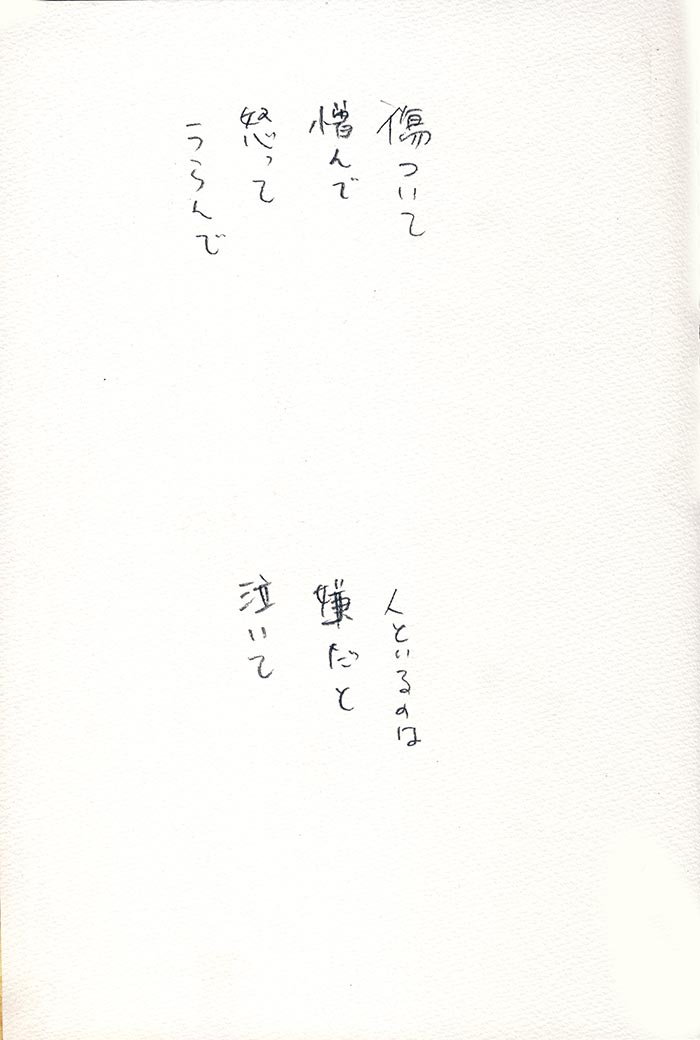 傷ついて
憎んで
怒って
うらんで
人といるのは
嫌だと
泣いて